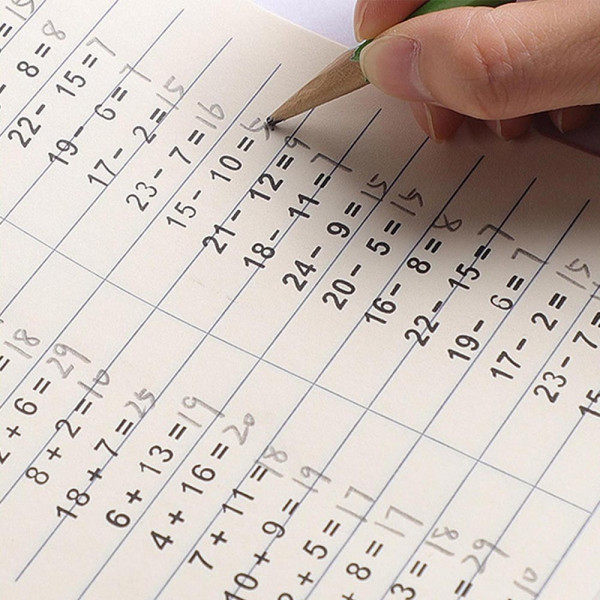 - 8 = 8
22- 15= 7
19- 6= 7
17- 2= 15
23- 7= 16
15- 10= 5
21- 12= 9
18- 11= 7
24- 9= 15
20- 5= 15
16- 8= 8
22- 15= 7
19- 6= 7
17- 2= 15
23- 7=
15-
= 18
2 + 6 = 29
8 + 2 = 10
18 + 7 = 25
6 + 13 = 19
4 + 16 = 20
7 + 11 = 18
10 + 9 = 19
+ 5 = 17
+ 8 = 17
3 = 18
= 29
10